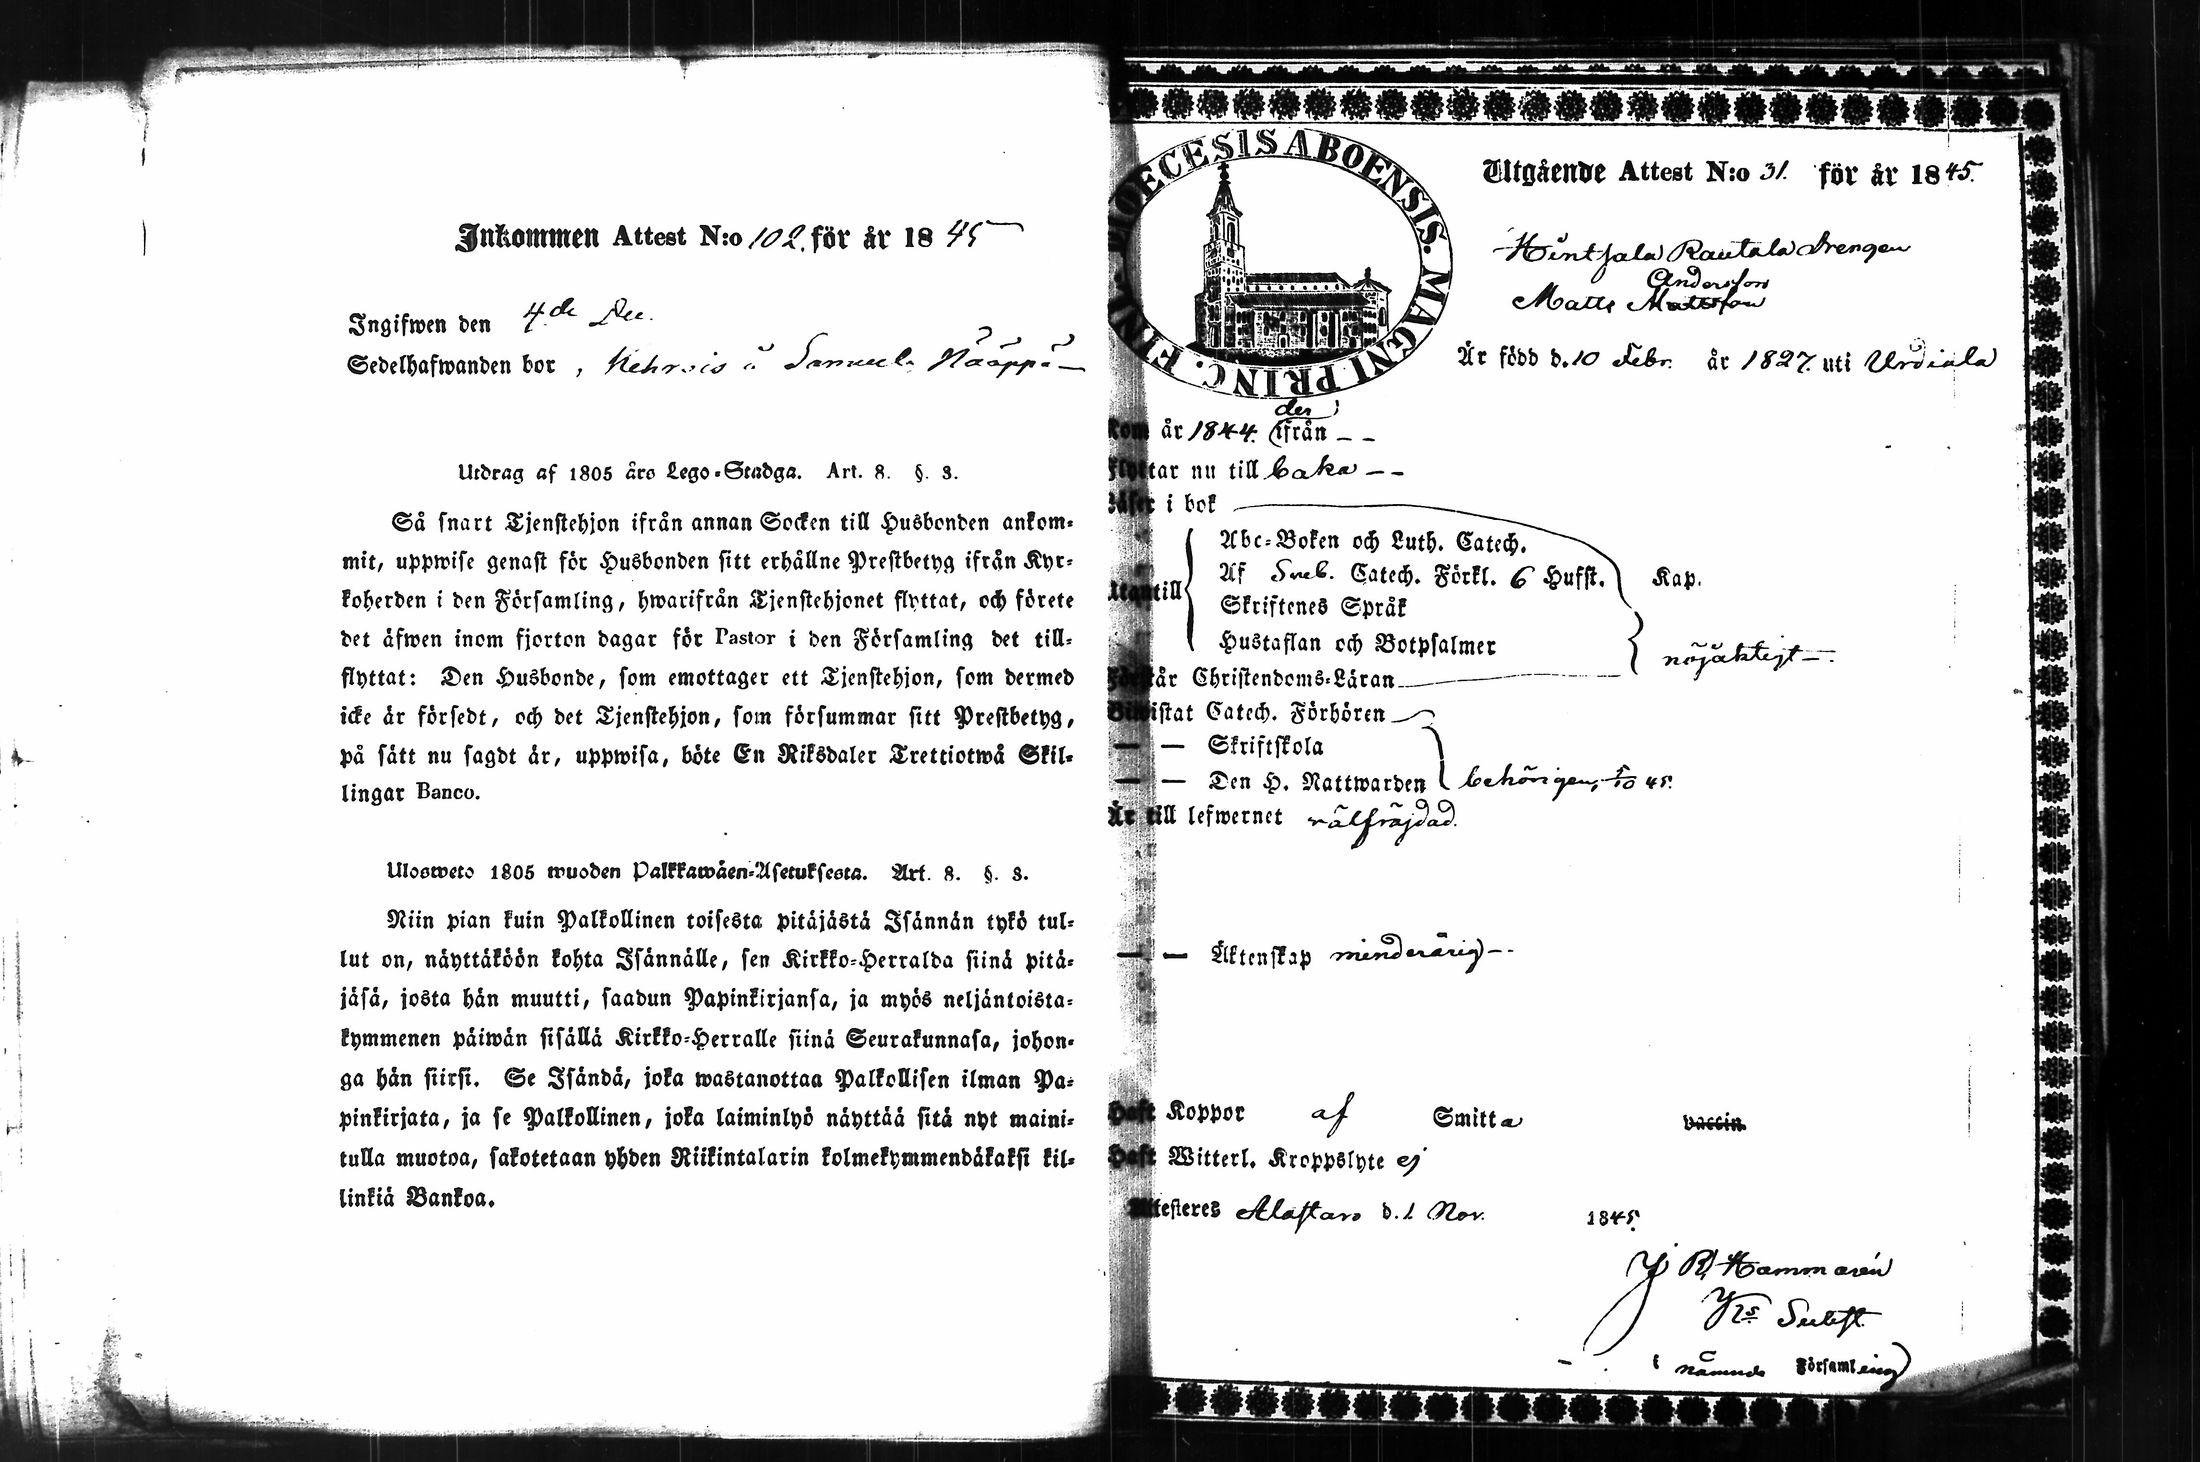 Inkommen Attest N:o 102. för år 1845
Ingifwen den 4de Dec.
Sedelhafwanden bor, i Samuela Nääppä
Utdrag af 1805 års Lego-Stadga. Art. 8. §. 3.
Så snart Tjenstehjon ifrån annan Socken till Husbonden ankom-
mit, uppwise genast för Husbonden sitt erhållne Prestbetyg ifrån Kyr-
koherden i den Församling, hwarifrån Tjenstehjonet flyttat, och förete
det äfwen inom fjorton dagar för Pastor i den Församling det till-
flyttat: Den Husbonde, som emottager ett Tjenstehjon, som dermed
icke är försedt, och det Tjenstehjon, som försummar sitt Prestbetyg,
på sätt nu sagdt är, uppwisa, böte En Riksdaler Trettiotwå Skil-
lingar Banco.
Ulosweto 1805 wuoden Palkkawäen-Asetuksesta. Art. 8. §. 3.
Niin pian kuin Palkollinen toisesta pitäjästä Isännän tykö tul-
lut on, näyttäköön kohta Isännälle, sen Kirkko-Herralda siinä pitä-
jäsä, josta hän muutti, saadun Papinkirjansa, ja myös neljäntoista-
kymmenen päiwän sisällä Kirkko-Herralle siinä Seurakunnasa, johon-
ga hän siirsi. Se Isändä, joka wastanottaa Palkollisen ilman Pa-
pinkirjata, ja se Palkollinen, joka laiminlyö näyttää sitä nyt maini-
tulla muotoa, sakotetaan yhden Riikintalarin kolmekymmendäkaksi kil-
linkiä Bankoa.
DIOECESIS ABOENSIS. MAGNI PRINC. FINL.
Utgående Attest N:o 31. för år 1845.
Hintsala Rautala Drengen
Andersson
Matts Mattsson
Är född d. 10 Febr. år 1827. uti Urdiala
der
Kom år 1844. ifrån – –
Flyttar nu till Eaka – –
Läser i bok
Utantill
Abc-Boken och Luth. Catech.
Af Sveb. Catech. Förkl. 6 Hufst. Kap.
Skriftenes Språk
Hustaflan och Botpsalmer
nöjaktigt –.
Förstår Christendoms-Läran
Biwistat Catech. Förhören
— — Skriftskola
— — Den H. Nattwarden behörigen, 5/10 45.
Är till lefwernet välfräjdad.
— — Äktenskap minderårig –.
Haft Koppor af Smitta vaccin.
Haft Witterl. Kroppslyte ej
Attesteres Alastaro d. 1. Nov. 1845.
J R Hammarén
Subst.
i nämnde Församling